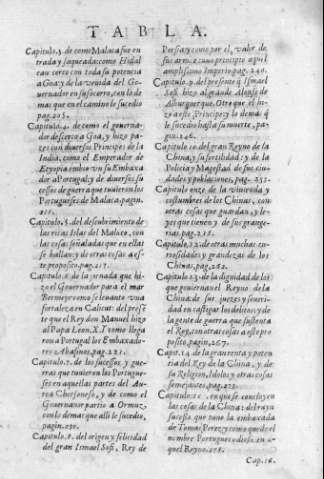 TABLA.
Capitulo.3. de como Malaca fue en
trada y saqueada: como Hidal
cau cerco con toda su potencia
a Goa: y de la venida del Go-
uernador en su socorro, con lo de
mas que en el camino le sucedio
pag.205.
Capitulo.4. de como el gouerna-
dor descerco a Goa, y hizo pa-
zes con diuersos Principes de la
India, como el Emperador de
Etyopia embio vn su Embaxa
dor a Portugal: y de diuersos su
cosos de guerra que tuuieron los
Portugueses de Malaca, pagin.
Capitulo.5. del descubrimiento de
las ricas Islas del Maluco, con
las cosas señaladas que en ellas
se hallan: y de otras cosas a es-
te proposito, pag.217.
Capitulo.6. de la jornada que hi-
zo el Gouernador para el mar
Bermejo: como se leuanto vna
fortaleza en Calicut: del presen
te que el Rey don Manuel hizo
al Papa Leon.X. I como llega
ron a Portugal los Embaxado-
res Abasinos, pag.221.
Capitulo.7. de los sucessos, y gue-
rras que tuuieron los Portugue-
ses en aquellas partes del Au-
rea Chersoneso, y de como el
Gouernador partio a Ormuz,
con lo demas que alli le sucedio,
pagin.230.
Capitulo.8. del origen y felicidad
del gran Ismael Sofi, Rey de
Persia: y como por el, valor de
sus armas
amplissimo Imperio, pag.240.
Capitulo.9. del presente que Ismael
Sofi hizo al grande Alonso de
Alburquerque, Otro que el hi-
zo a este Principe: y lo demas que
le sucedio hasta su muerte, pa-
gin.246.
Capitulo 10. del gran Reyno de la
China, y su fertilidad: y de la
Policia y Magestad de sus ciu-
dades y poblaciones, pag.
Capitulo onze de la viuienda y
costumbres de los Chinas, con
otras cosas que guardan, y le-
yes que tienen y de sus grange-
rias, pag.256.
Capitulo.12. de otras muchas cu-
riosidades y grandezas de los
China, pag.262.
Capitulo.13. de la dignidad de los
que gouiernan el Reyno de la
China: de sus juezes y seueri-
dad en castigar los delitos: y de
la gente de guerra que sustenta
el Rey, con otras cosas a este pro
posito, pagin.267.
Capit.14. de la gran renta y poten
cia del Rey de la China, y de
su Religion, Idolos y otras cosas
semejantes, pag.272.
Capitulo en que se concluyen
las cosas de la China: del ruyn
sucesso que tuuo la embaxada
de Tomas Perez: y como quedo el
nombre Portugues odioso, en a-
quel Reyno.278.
Cap.16.